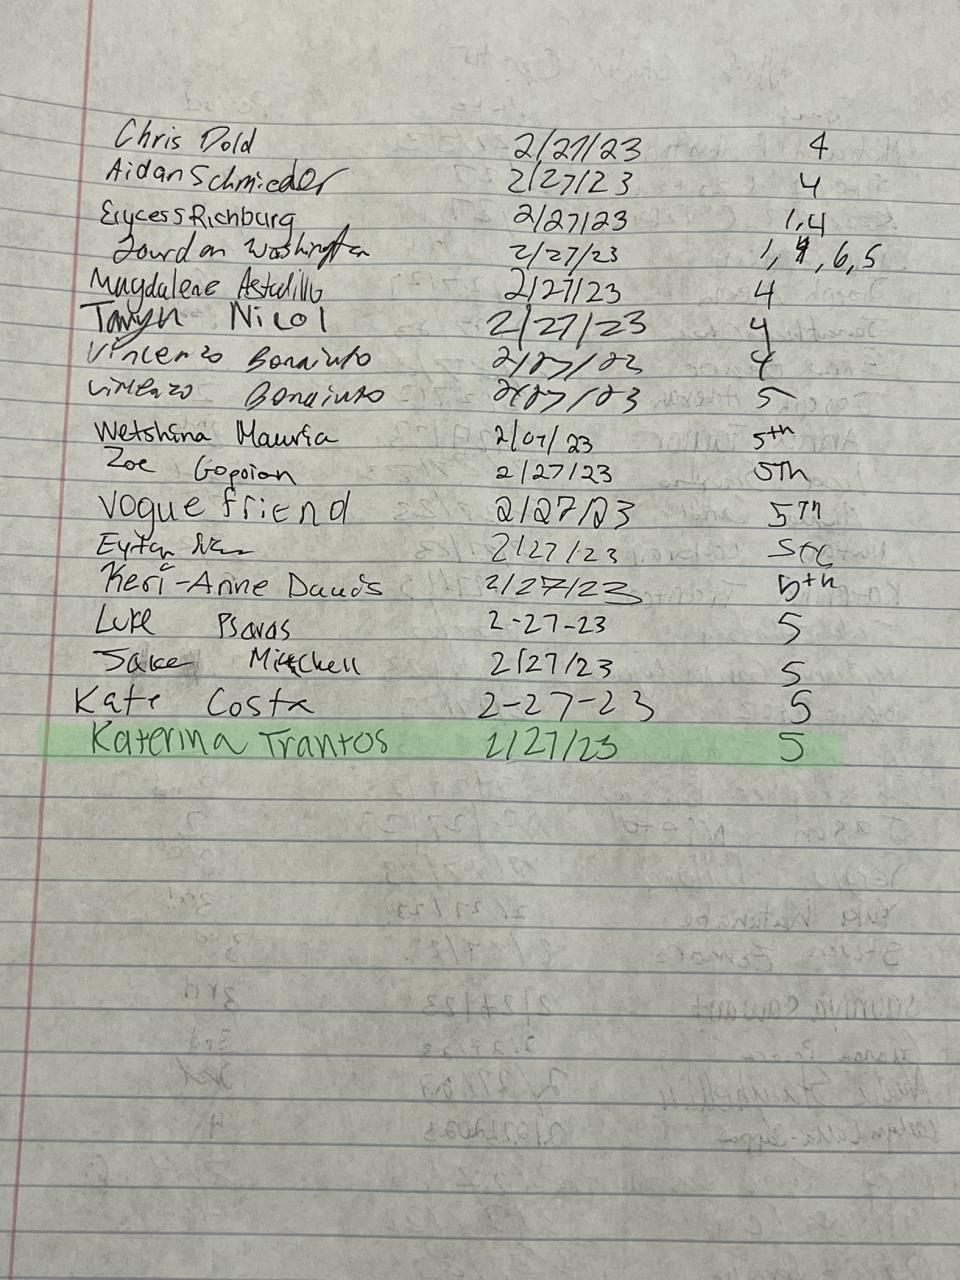 Chris Dold 2/27/23 4
Aidan Schmieder 2/27/23 4
Erycess Richburg 2/27/23 1,4
Jourdan Washington 2/27/23 1, 4, 6, 5
Magdalene Astudillo 2/27/23 4
Taryn Nicol 2/27/23 4
Vincenzo Bonaiuto 2/27/23 4
Vincenzo Bonaiuto 2/27/23 5
Wetshina Mauria 2/07/23 5th
Zoe Gopoian 2/27/23 5th
Vogue friend 2/27/23 5th
Eytan 2/27/23
Keri-Anne Dauds 2/27/23 5th
Luke Psaras 2-27-23 5
Jake Mitchell 2/27/23 5
Kate Costa 2-27-23 5
Katerina Trantos 2/27/23 5